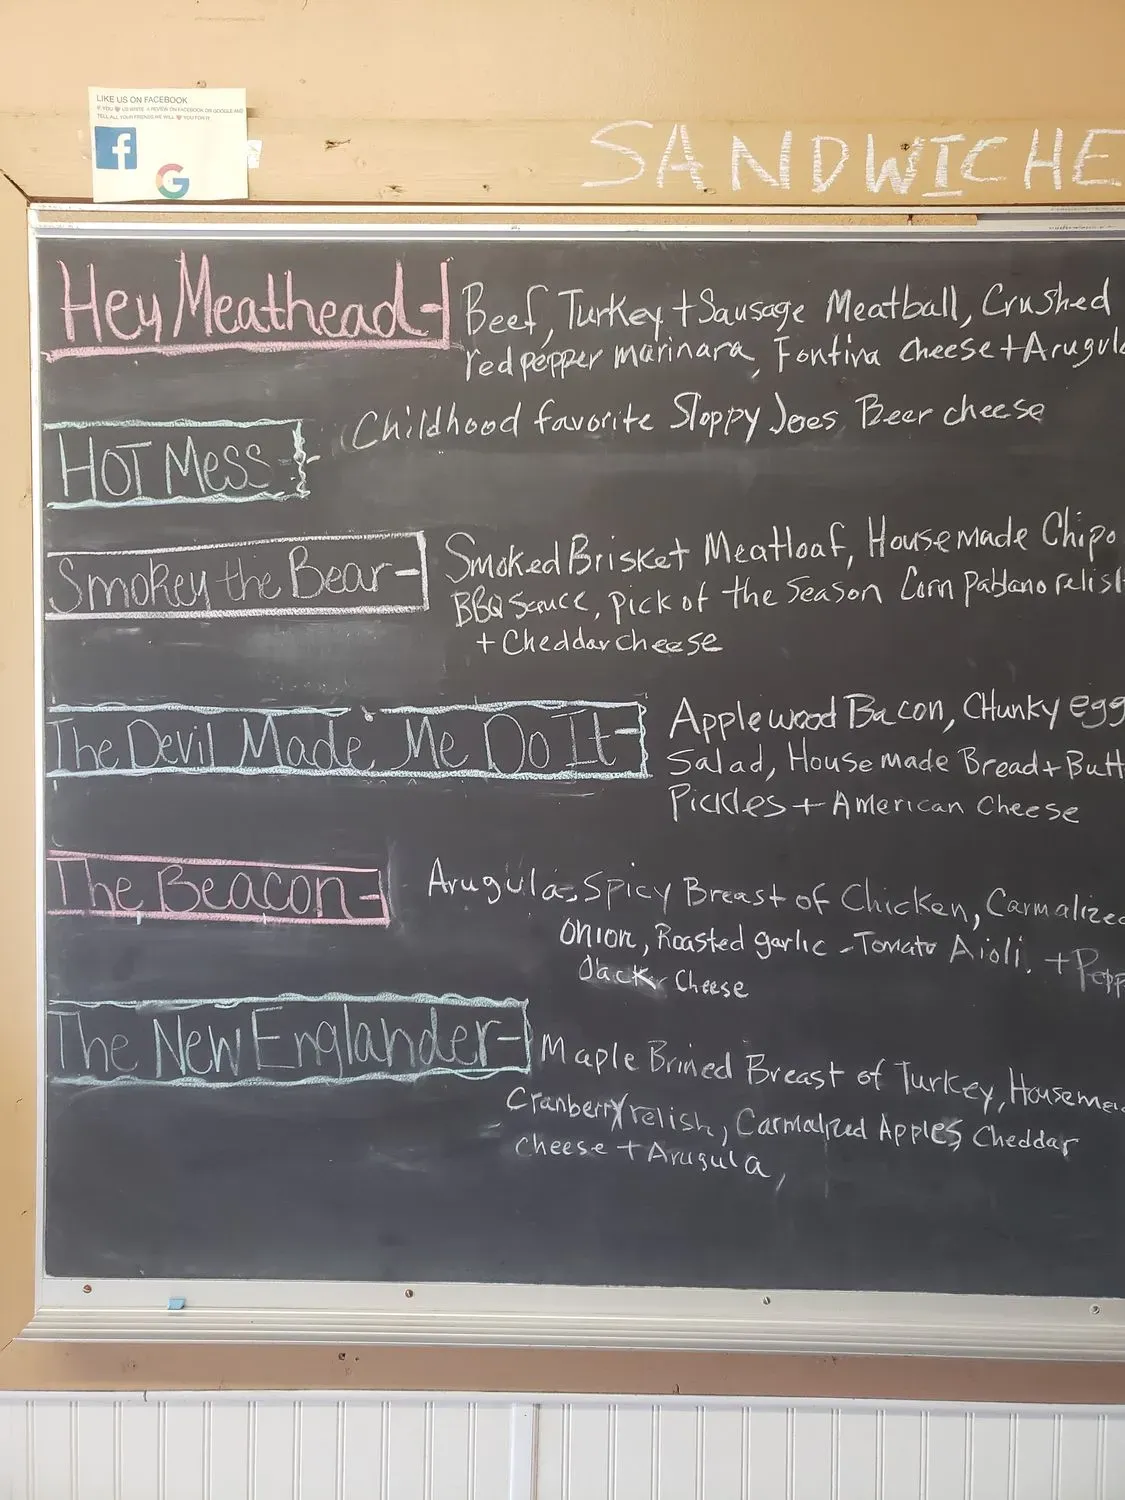 LIKE US ON FACEBOOK
IF YOU ❤ US WRITE A REVIEW ON FACEBOOK OR GOOGLE AND
TELL ALL YOUR FRIENDS WE WILL ❤ YOU FOR IT
f
G
SANDWICHE
Hey Meathead- Beef, Turkey + Sausage Meatball, Crushed
red pepper marinara, Fontina cheese + Arugula
HOT MESS - Childhood favorite Sloppy Joes Beer cheese
Smokey the Bear- Smoked Brisket Meatloaf, Housemade Chipo
BBQ Sauce, pick of the Season Corn pablano relish
+ Cheddar cheese
The Devil Made Me Do It- Applewood Bacon, CHunky egg
Salad, Housemade Bread + Butt
Pickles + American Cheese
The Beacon- Arugula, Spicy Breast of Chicken, Carmalized
Onion, Roasted garlic - Tomato Aioli. + Pepp
Jack Cheese
The New Englander- Maple Brined Breast of Turkey, Housemad
Cranberry relish, Carmalized Apples, Cheddar
Cheese + Arugula,